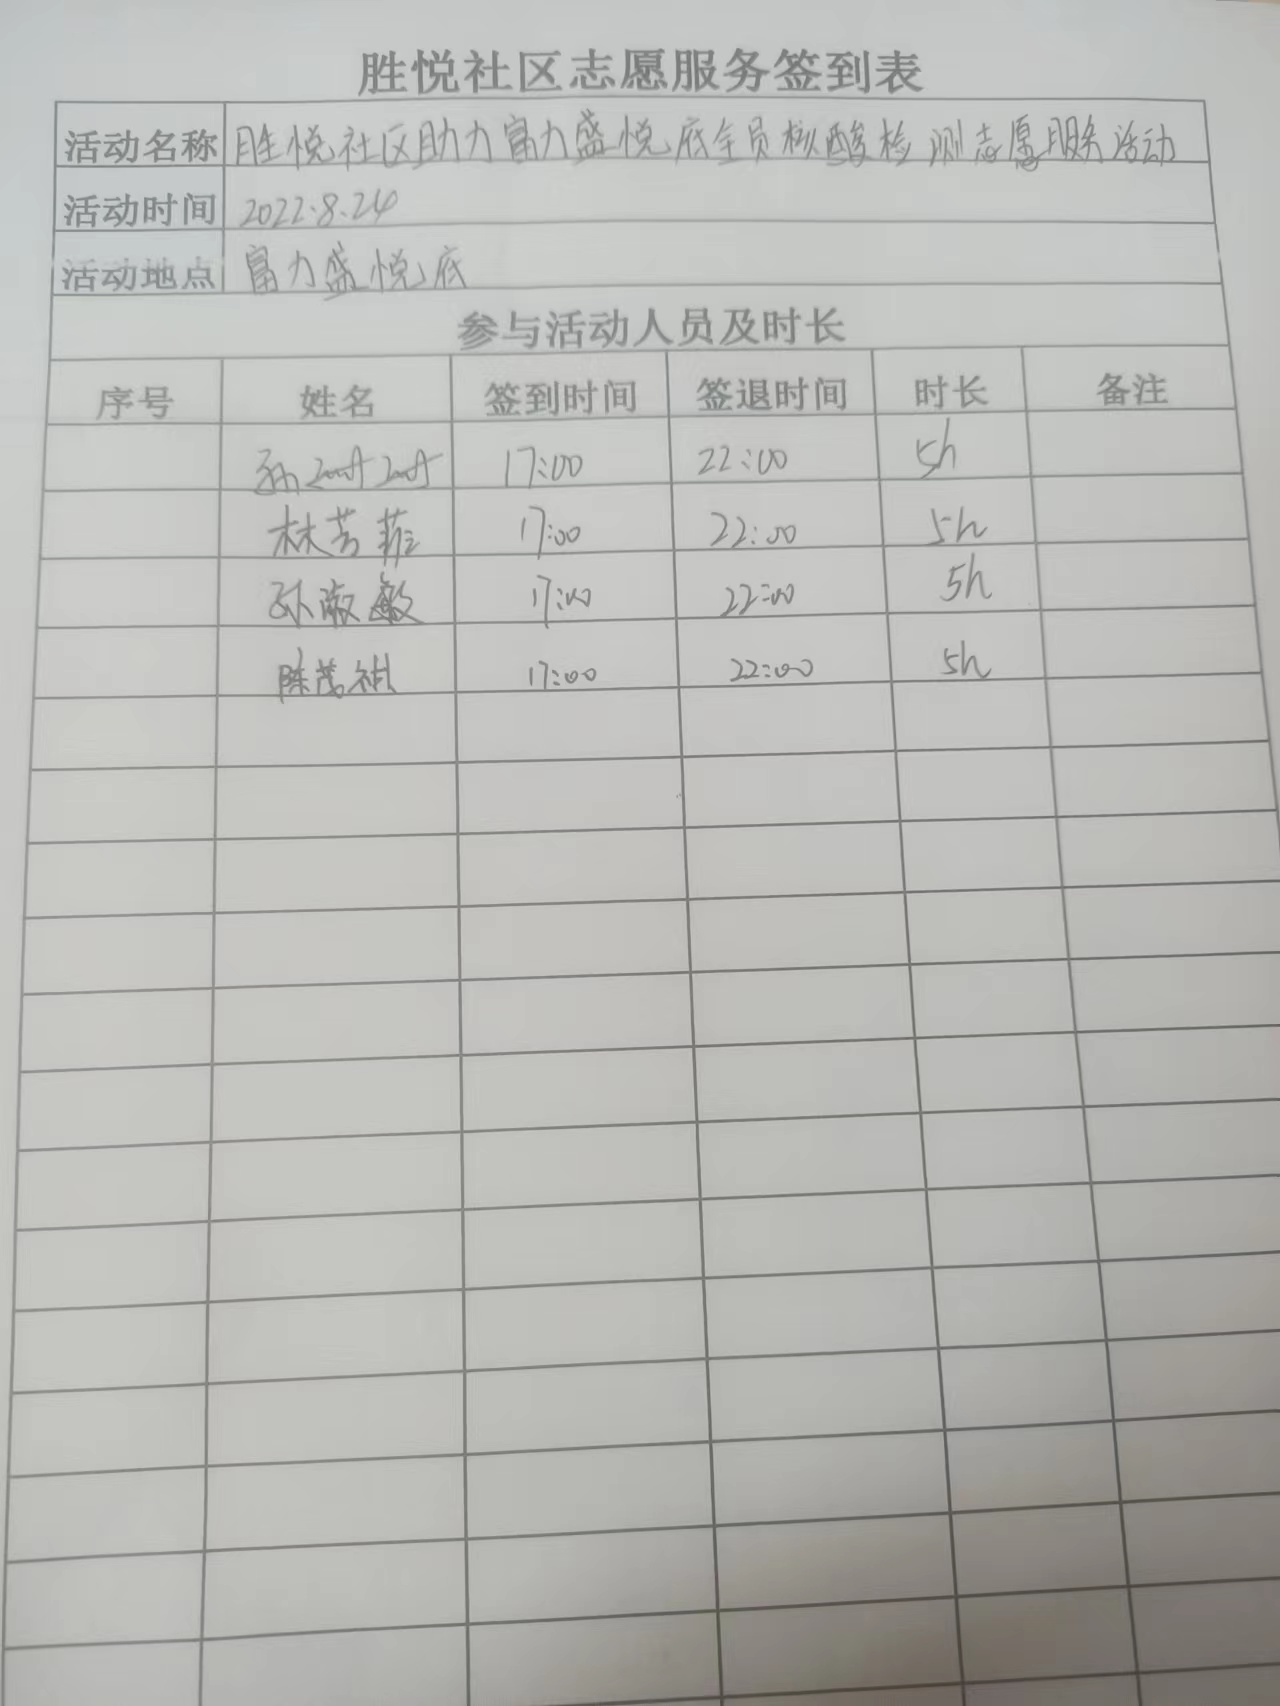 胜悦社区志愿服务签到表
活动名称 胜悦社区助力富力盛悦底全员核酸检测志愿服务活动
活动时间 2022.8.24
活动地点 富力盛悦底
参与活动人员及时长
序号 姓名 签到时间 签退时间 时长 备注
孙 17:00 22:00 5h
林芳菲 17:00 22:00 5h
孙淑敏 17:00 22:00 5h
陈茂祺 17:00 22:00 5h